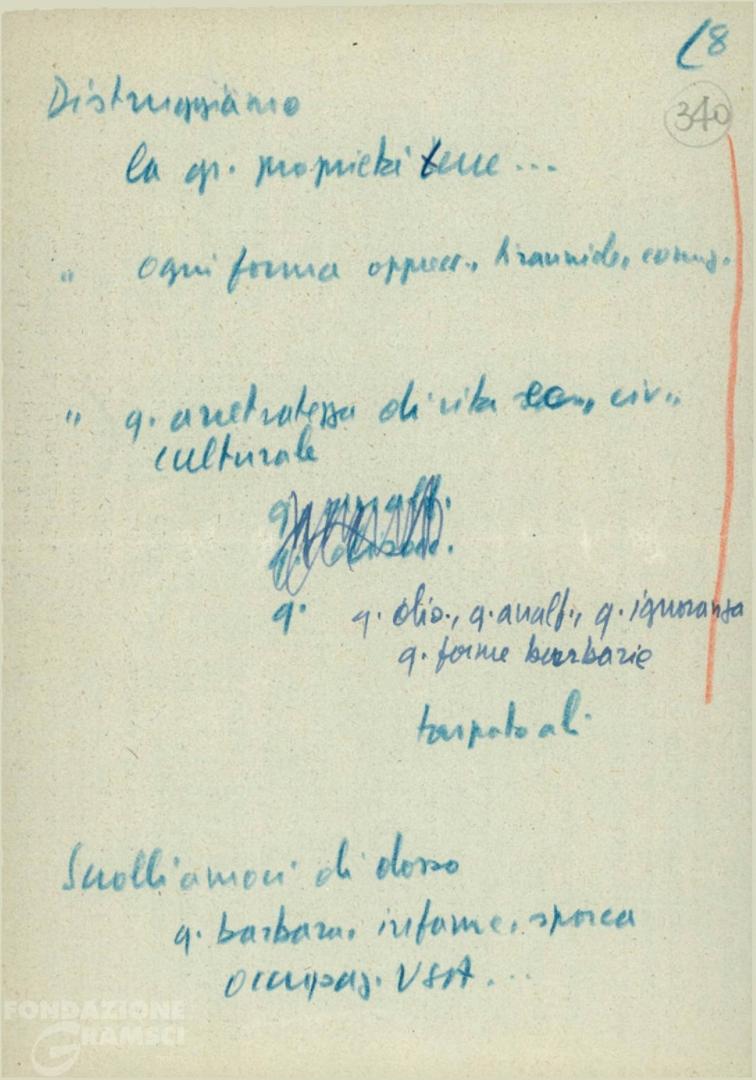 (8
340
Distruggiamo
la gr. proprietà terr...
" ogni forma oppress., tirannide, corruz.
" q. arretratezza di vita econ, civ.,
culturale
q. analf.
q.
q. q. olio., q. analf., q. ignoranza
q. forme barbarie
tarpato ali
Scrolliamoci di dosso
q. barbara, infame, sporca
occupaz. USA...
FONDAZIONE
GRAMSCI